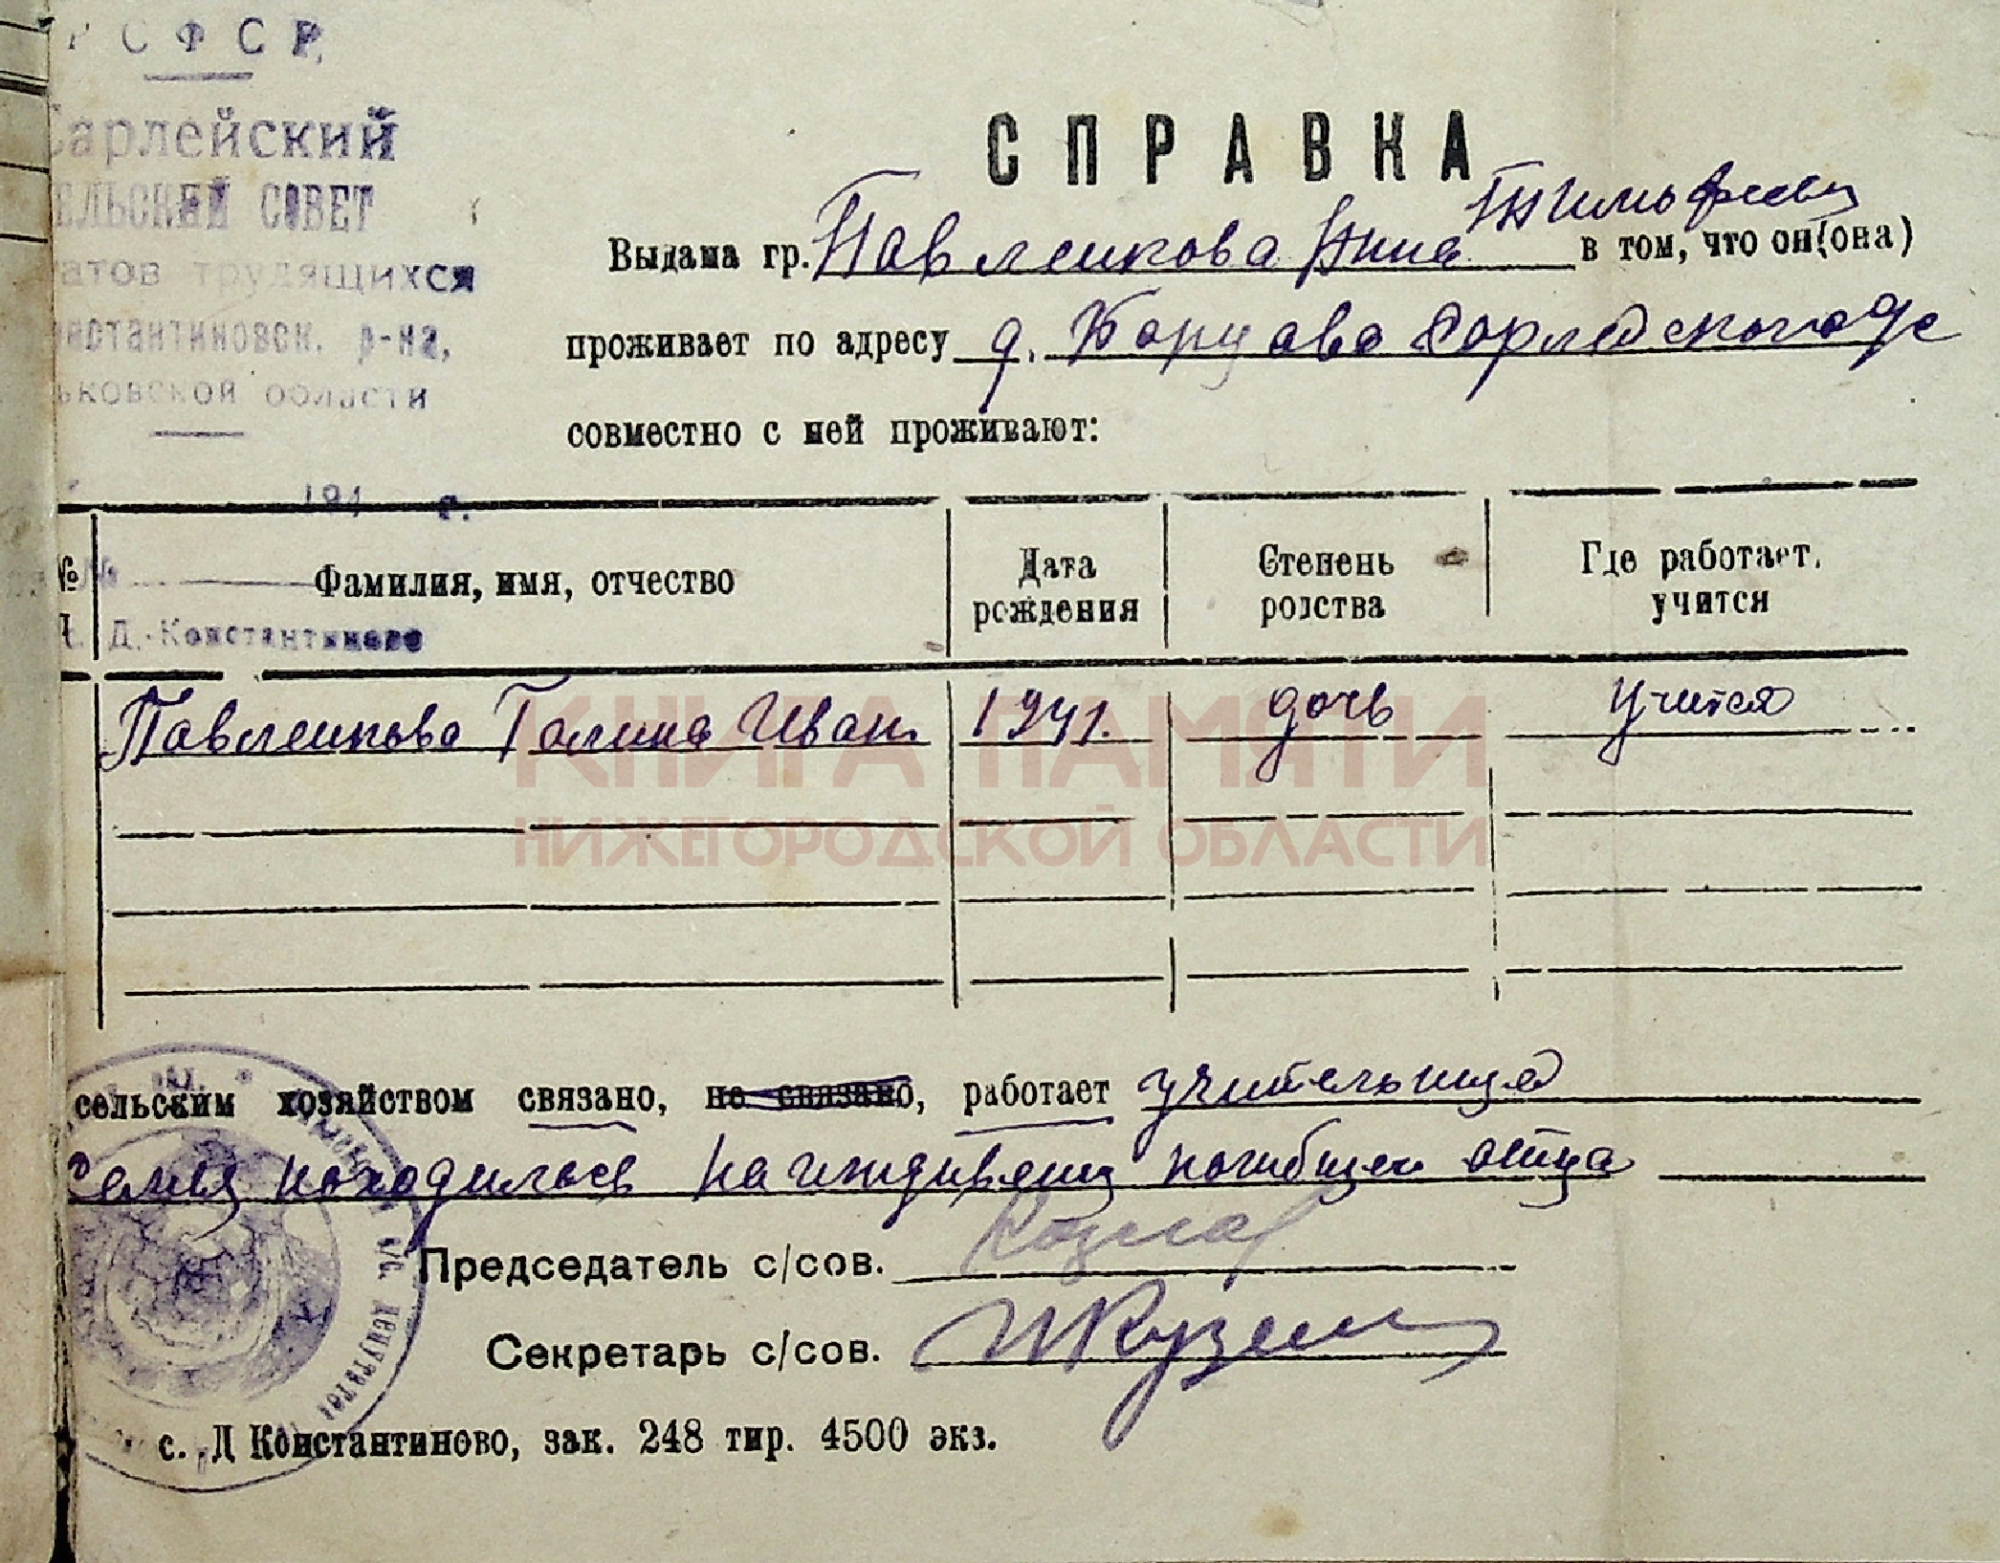 Р С Ф С Р,
Сарлейский
ЕЛЬСКИЙ СОВЕТ
атов трудящихся
нстантиновск. р-на,
ьковской области
194 г.
№
с. Д.-Константиново
СПРАВКА
Выдана гр. Павленкова Нина Тимофеев в том, что он(она)
проживает по адресу д. Сарлейского с/с
совместно с ней проживают:
№ Фамилия, имя, отчество Дата рождения Степень родства Где работает, учится
Павленкова Галина Иван. 1941. дочь учится
КНИГА ПАМЯТИ
НИЖЕГОРОДСКОЙ ОБЛАСТИ
сельским хозяйством связано, не связано, работает учительницей
Семья находилась на иждивении погибшего отца
Председатель с/сов. Козлов
Секретарь с/сов.
с. Д Константиново, зак. 248 тир. 4500 экз.